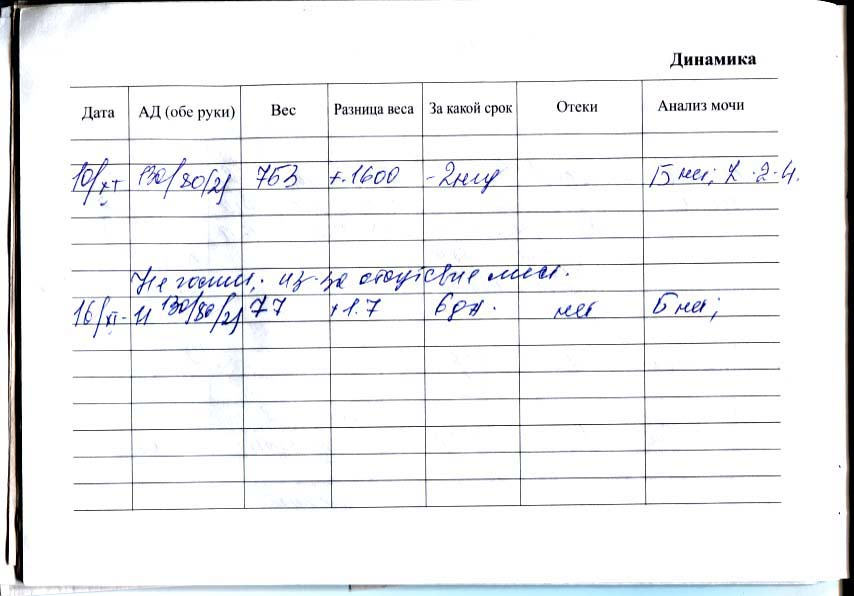 Динамика
Дата АД (обе руки) Вес Разница веса За какой срок Отеки Анализ мочи
10/XI 130/80(2) 753 +.1600 -2нед Б нет; L-2-4.
из-за отсутствие мест.
16/XI-11 130/80/(2) 77 +1.7 6дн. нет Б нет;